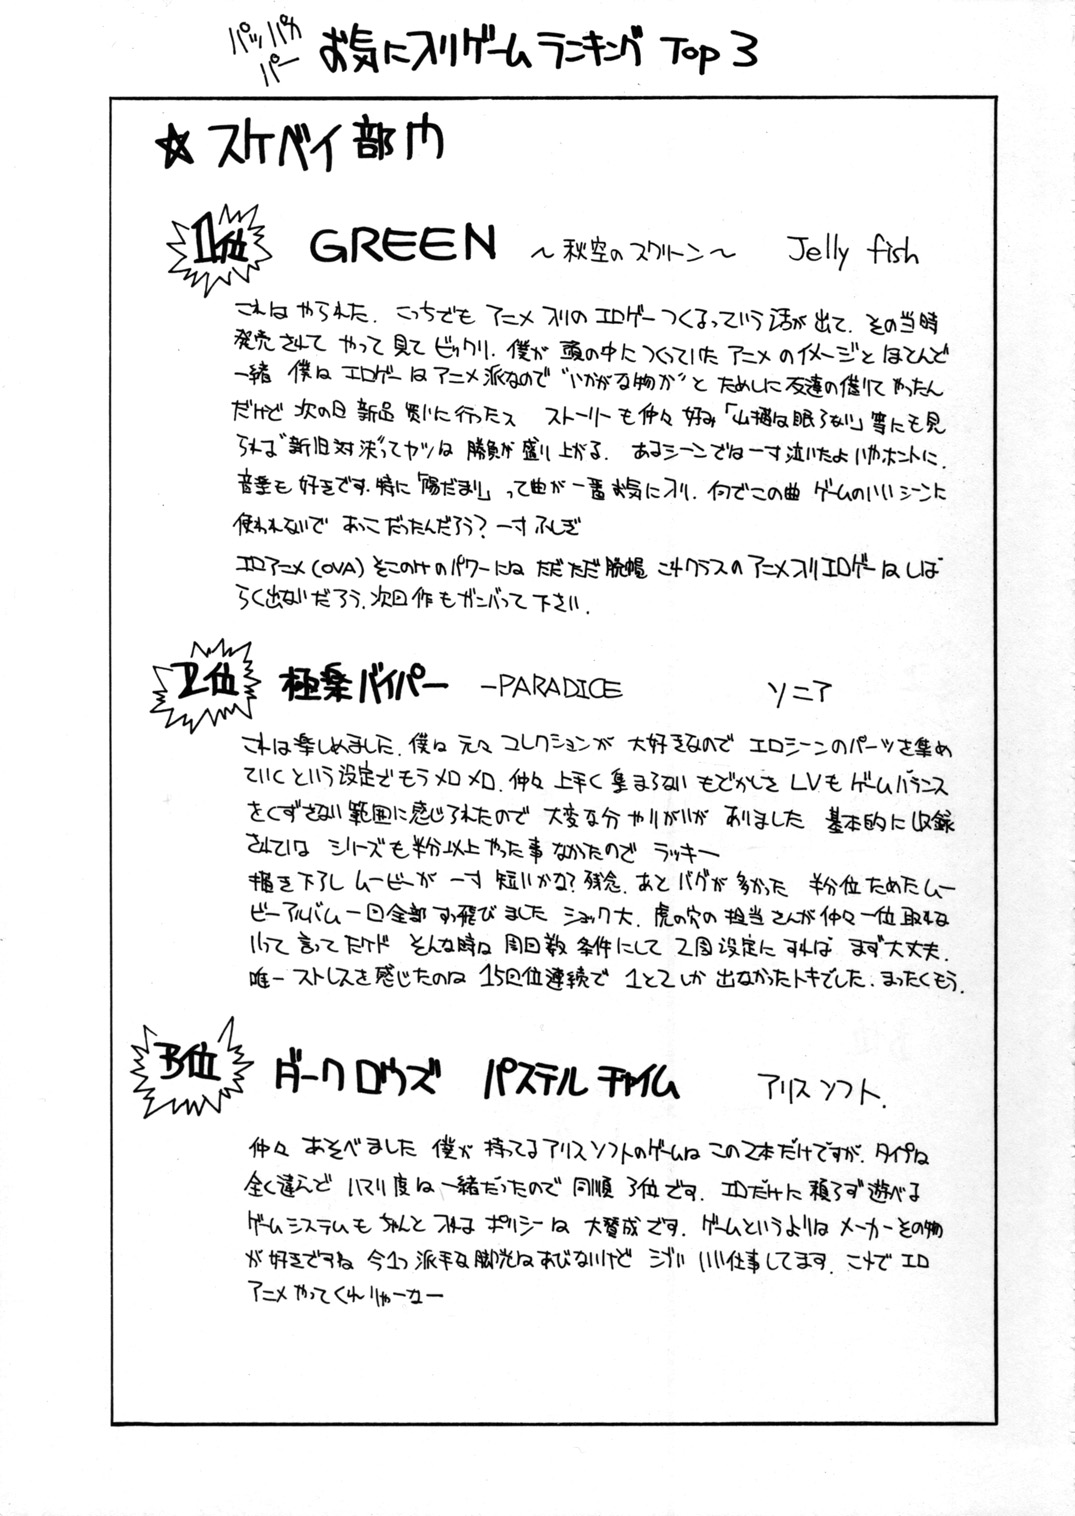 パッパカ
パー
お気に入りゲームランキング Top 3
☆ スケベイ部門
1位 GREEN ～秋空のスクリーン～ Jelly fish
これはやられた. こっちでも アニメ入りのエロゲーつくるっていう話が出て. その当時
発売されて やって見てビックリ. 僕が 頭の中につくっていた アニメのイメージと ほとんど
一緒 僕は エロゲーは アニメ派なので "いかがな物か"と ためしに友達の借りてやったん
だけど 次の日 新品 買いに行ったス ストーリーも仲々 好み 「山猫は眠らない」等にも見
られる"新旧対決"ってヤツは 勝負が盛り上がる. あるシーンでは一寸泣いたよ いやホントに.
音楽も 好きです. 特に「陽だまり」って曲が一番お気に入り. 何でこの曲 ゲームのいいシーンに
使われないで おっこだったんだろう? 一寸ふしぎ
エロアニメ(OVA)そこのけのパワーには ただただ脱帽 こんクラスのアニメ入りエロゲーはしば
らく出ないだろう. 次回作もガンバって下さい.
2位 極楽バイパー －PARADICE ソニア
これは楽しめました. 僕は元々コレクションが 大好きなので エロシーンのパーツを集め
ていくという設定でもうメロメロ. 仲々上手く集まらない もどかしさ LVも ゲームバランス
をくずさない範囲に感じられたので 大変な分 やりがいが ありました 基本的に収録
されている シリーズも半分以上やった事なかったので ラッキー
描き下ろし ムービーが 一寸 短いかな? 残念. あと バグが 多かった 半分位ためたムー
ビーアルバム一回全部すっ飛びました ショック大. 虎の穴の担当さんが仲々一位取れな
いって言ってたケド そんな時は 周回数 条件にして 2周設定にすれば まず大丈夫.
唯一ストレスを感じたのは 15回位連続で 1と2しか 出なかったトキでした. まったくもう.
3位 ダークロウズ パステルチャイム アリスソフト.
仲々 あそべました 僕が 持ってるアリスソフトのゲームは この2本だけですが. タイプは
全く違んど ハマリ度は一緒だったので 同順 3位です. エロだけに 頼らず 遊べる
ゲームシステムも ちゃんと 入れる ポリシーは 大賛成です. ゲームというよりは メーカーその物
が好きですね 今1つ 派手な脚光はあびないけど シブい いい仕事してます. これで エロ
アニメやってくれりゃーなー